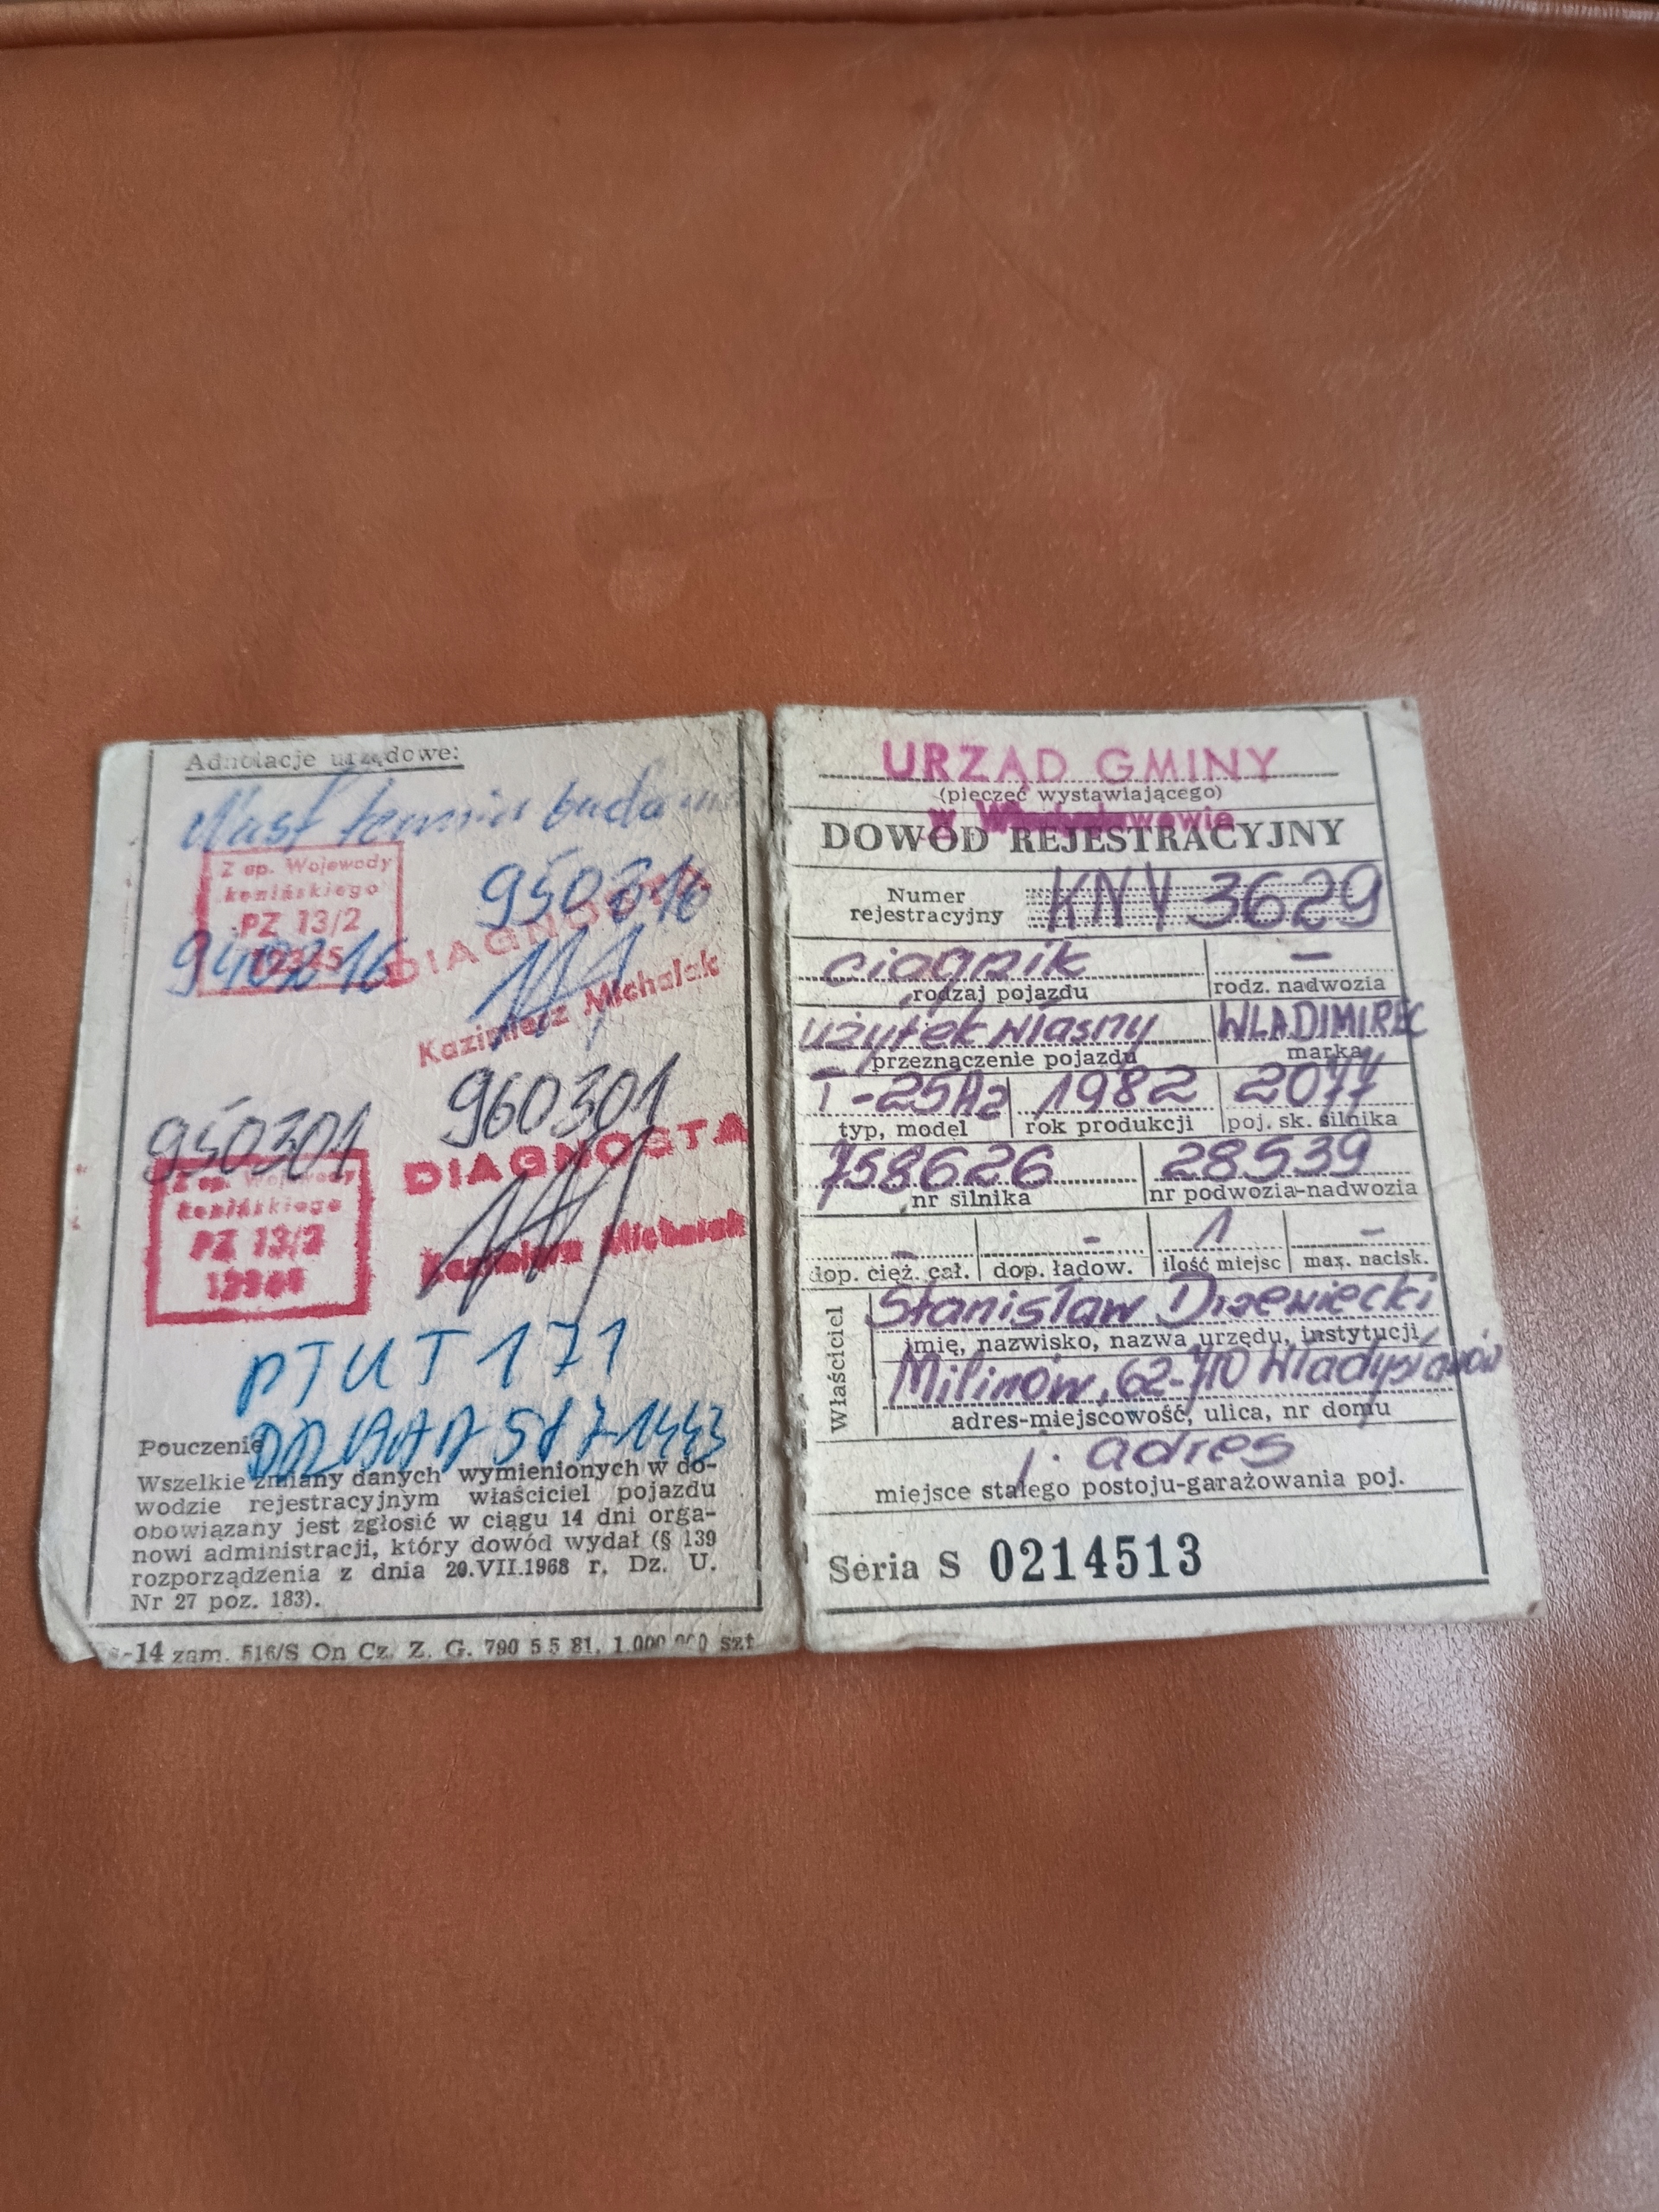 Adnotacje urzędowe:
Nast termin bada
Z up. Wojewody
konińskiego
PZ 13/2
950316
940216
DIAGNOSTA
Kazimierz Michalak
950301
960301
Z up. Wojewody
konińskiego
PZ 13/2
DIAGNOSTA
Kazimierz Michalak
PTUT 171
5171443
Pouczenie
Wszelkie zmiany danych wymienionych w do-
wodzie rejestracyjnym właściciel pojazdu
obowiązany jest zgłosić w ciągu 14 dni orga-
nowi administracji, który dowód wydał (§ 139
rozporządzenia z dnia 20.VII.1968 r. Dz. U.
Nr 27 poz. 183).
-14 zam. 516/S On Cz. Z. G. 790 5 5 81. 1.000.000 szt
URZĄD GMINY
(pieczęć wystawiającego)
DOWÓD REJESTRACYJNY
Numer
rejestracyjny KNY 3629
ciągnik –
rodzaj pojazdu rodz. nadwozia
użytek własny WŁADIMIREC
przeznączenie pojazdu marka
T-25A2 1982 2077
typ, model rok produkcji poj. sk. silnika
758626 28539
nr silnika nr podwozia-nadwozia
– – 1 –
dop. cięż. cał. dop. ładow. ilość miejsc max. nacisk.
Właściciel
Stanisław Drzewiecki
imię, nazwisko, nazwa urzędu, instytucji
Milinów, 62-710 Władysławów
adres-miejscowość, ulica, nr domu
j. adres
miejsce stałego postoju-garażowania poj.
Seria S 0214513